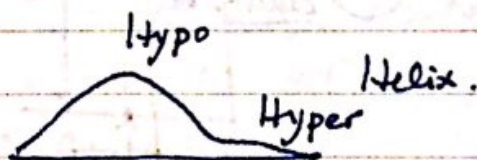 Hypo
Helix.
Hyper